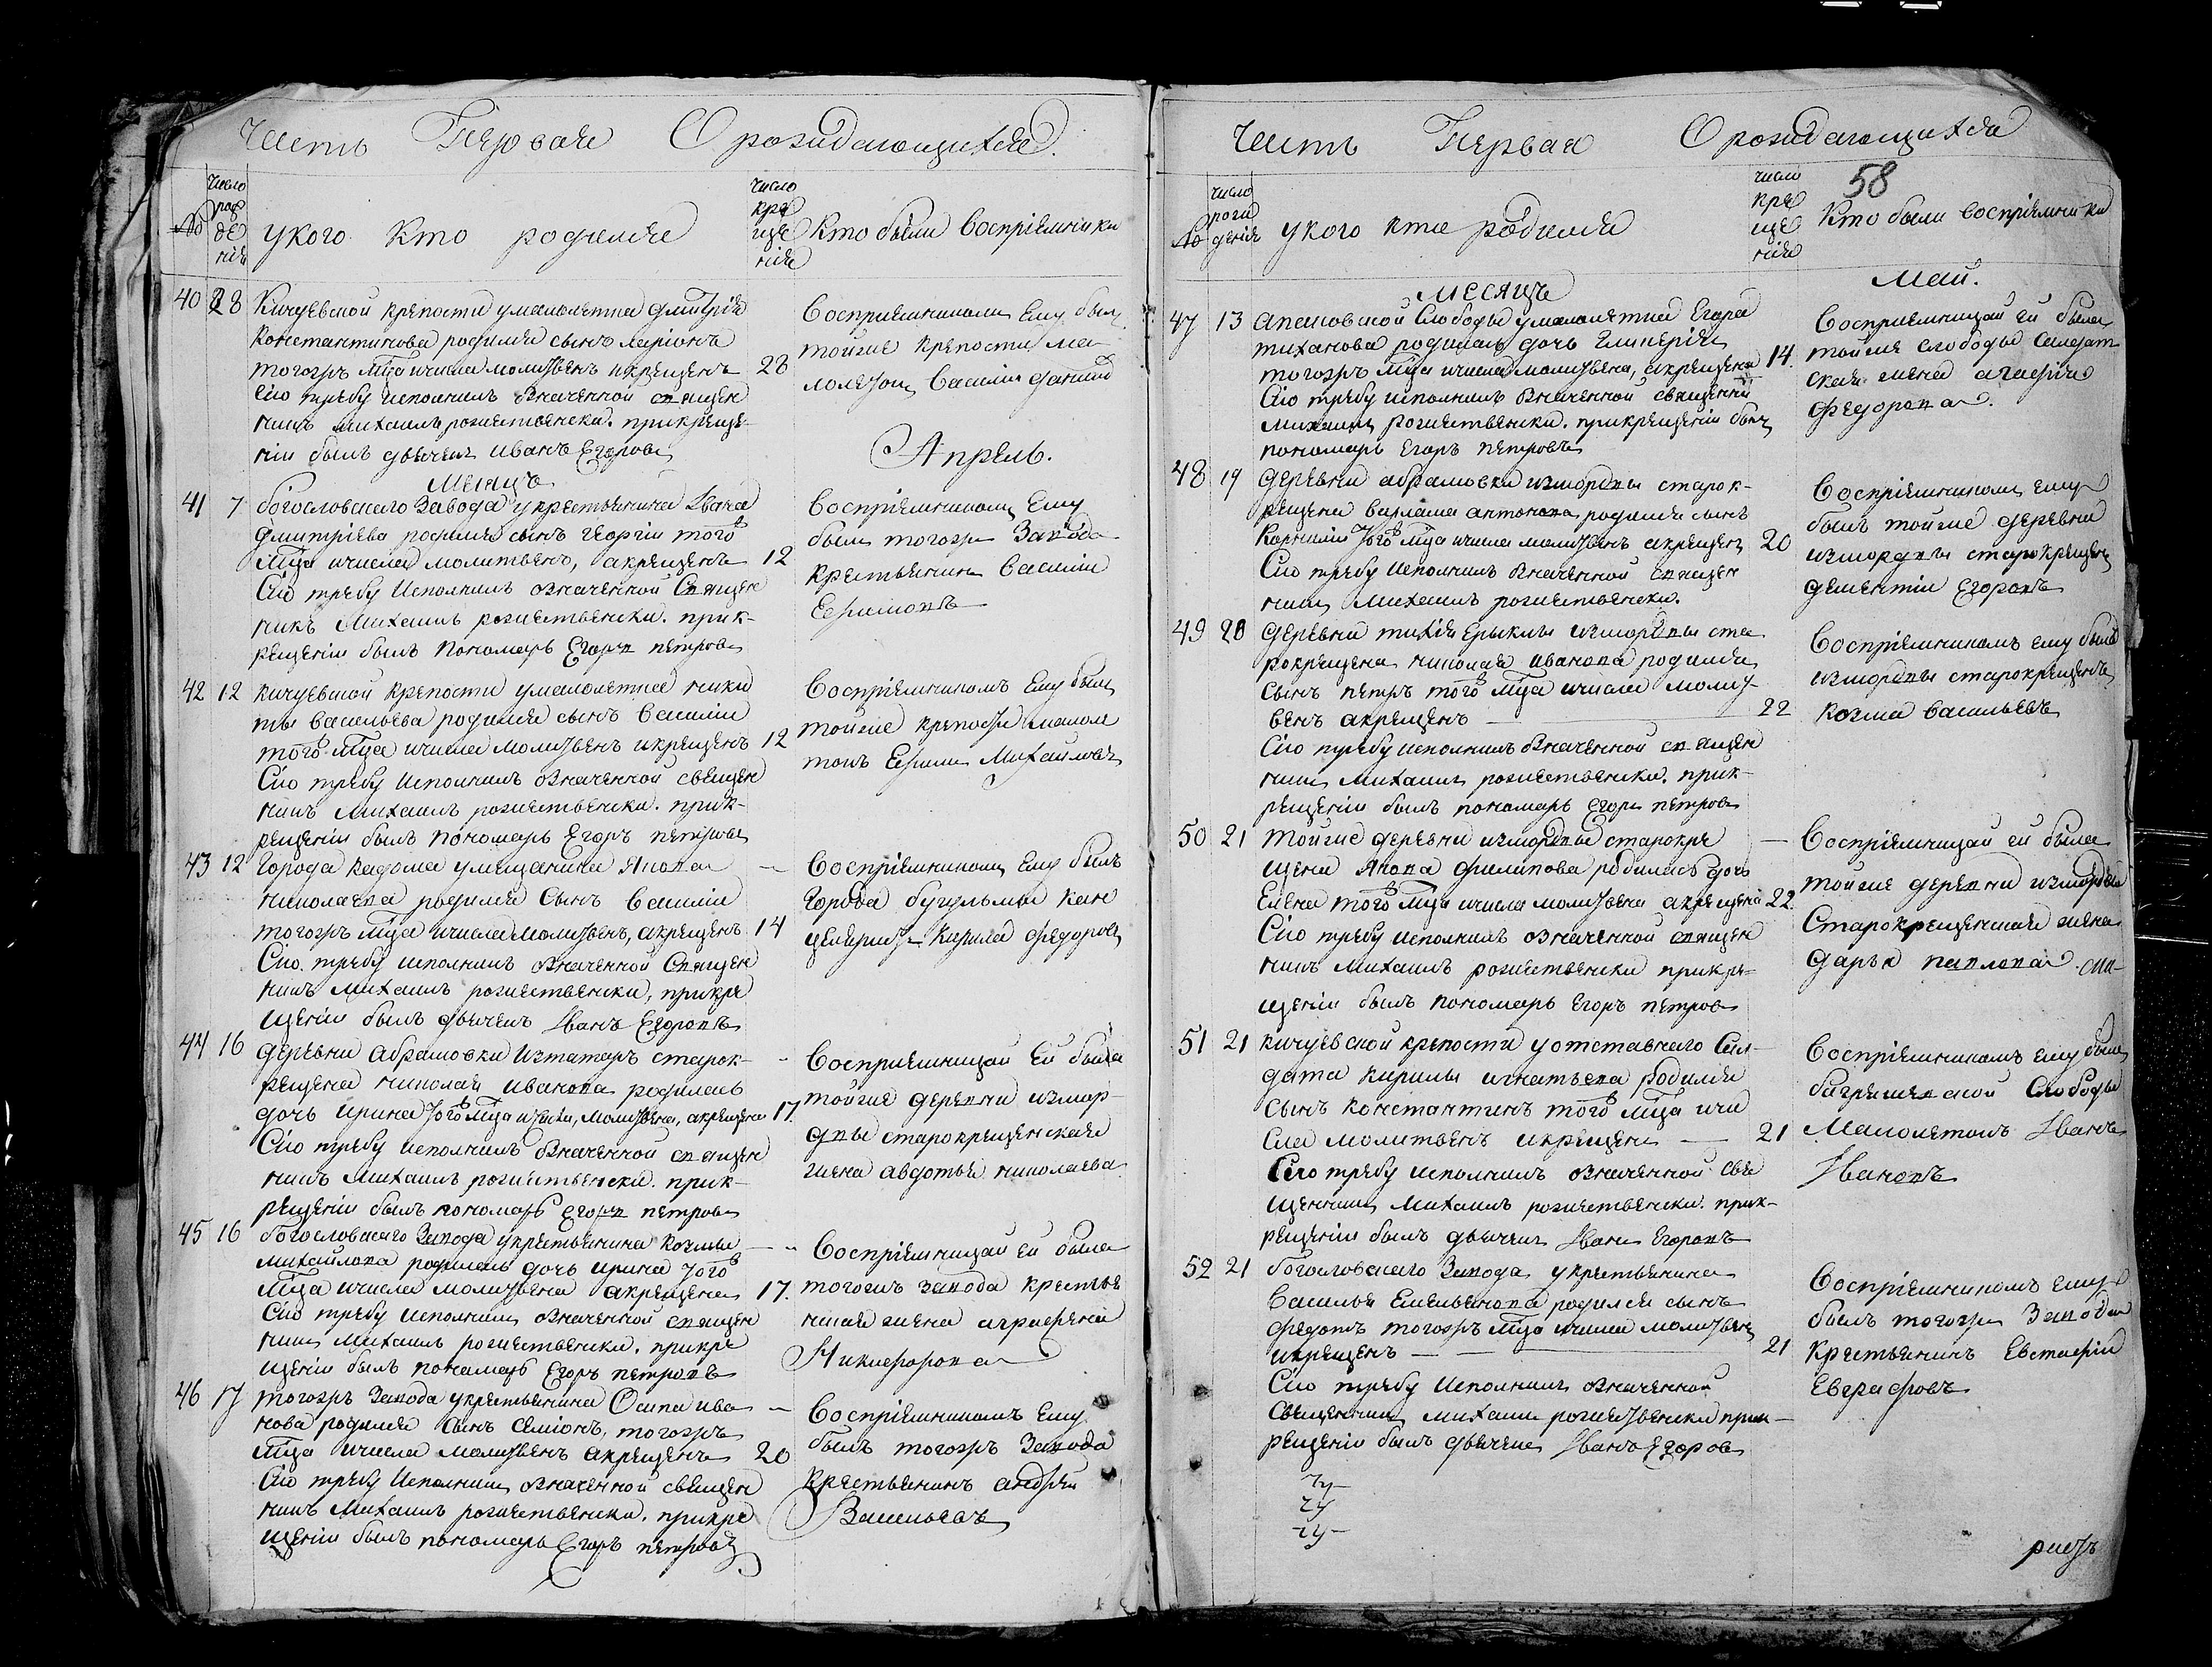 Часть Первая О рождающихся
№
число рождения
у кого кто родился
число крещения
Кто были восприемники
40 28 Кичуевской крепости умалолетна дмитрія
Константинова родился сынъ ларіонъ
тогожъ мца ичисла молитвенъ икрещенъ 28
Сію требу исполнилъ Означенной священ
никъ михаилъ рожественски. прикреще-
ніи былъ дьячекъ иванъ Егоровъ
Восприемникомъ Ему былъ
тойже крепости ма-
лолетокъ василій
Месяцъ Апрель.
41 7 богословскаго Завода укрестьянина Ивана
дмитріева родился сынъ георгіи того
мца ичисла молитвенъ, акрещенъ 12
Сію требу Исполнилъ Означенной Священ
никъ Михаилъ рожественски. прик-
рещеніи былъ Пономарь Егоръ петровъ
Восприемникомъ Ему
былъ тогожъ Завода
крестьянинъ василіи
Ефимовъ
42 12 кичуевской крепости умалолетна ники
ты васильева родился сынъ василіи
того мца ичисла молитвенъ икрещенъ 12
Сію требу Исполнилъ Означенной священ
никъ Михаилъ рожественски. прик-
рещеніи былъ Пономарь Егоръ петровъ
Восприемникомъ Ему былъ
тойже крепости малоле
токъ Ефимъ Михаиловъ
43 12 города кадома умещанина Якова
николаева родился Сынъ василіи
тогожъ мца ичисла молитвенъ, акрещенъ 14
Сію требу исполнилъ Означенной Священ
никъ михаилъ рожественски, прикре
щеніи былъ дьячекъ Иванъ Егоровъ
Восприемникомъ Ему былъ
Города бугульмы кан
целяристъ кирила федоровъ
44 16 деревни Абрамовки Изтатаръ старок-
рещена николая иванова родилась
дочь ирина того мца ичисла, молитвена, акрещена 17.
Сію требу исполнилъ Означенной священ
никъ михаилъ рожественски. прик-
рещеніи былъ пономарь егоръ петровъ
Восприемницай Ей была
тойже деревни измор-
двы старокрещенская
жена авдотья николаева
45 16 богословскаго Завода укрестьянина козмы
михаилова родилась дочь ирина того
мца ичисла молитвена акрещена 17.
Сію требу исполнилъ Означенной священ
никъ михаилъ рожественски. прикре
щеніи былъ пономарь Егоръ петровъ
Восприемницай Ей была
тогожъ завода крестья
нская жена аграфена
Никифорова
46 17 тогожъ Завода укрестьянина Осипа ива
нова родился Сынъ семіонъ, тогожъ
мца ичисла молитвенъ акрещенъ 20
Сію требу Исполнилъ Означенной священ
никъ михаилъ рожественски. прикре
щеніи былъ пономарь Егоръ петровъ
Восприемникомъ Ему
былъ тогожъ Завода
крестьянинъ андрей
Васильевъ
Часть Первая О рождающихся
58
№
число рождения
у кого кто родился
число крещения
Кто были восприемники
месяцъ Май.
47 13 Слободы умалолетна Егора
тиханова родилась дочь
тогожъ мца ичисла молитвена, акрещена 14.
Сію требу исполнилъ Означенной священникъ
михаилъ рожественски. прикрещеніи былъ
пономарь Егоръ петровъ
Восприемницай ей была
тойже слободы салдат
ская жена агафія
федорова.
48 19 деревни абрамовки измордвы старок-
рещена варлама антонова родился сынъ
Карнилій того мца ичисла молитвенъ акрещенъ 20
Сію требу исполнилъ Означенной священ
никъ Михаилъ рожественски.
Восприемникомъ ему
былъ тойже деревни
измордвы старокрещенъ
дементіи Егоровъ
49 20 деревни измордвы ста
рокрещена николая иванова родился
Сынъ петръ того мца ичисла молит-
венъ акрещенъ 22
Сію требу исполнилъ Означенной священ
никъ михаилъ рожественски. прик-
рещеніи былъ пономарь Егоръ петровъ
Восприемникомъ ему былъ
измордвы старокрещенъ
козма васильевъ
50 21 тойже деревни измордвы старокре
щена Якова филипова родилась дочь
Елена того мца ичисла молитвена акрещена 22
Сію требу исполнилъ означенной священ
никъ михаилъ рожественски прикре-
щеніи былъ пономарь Егоръ петровъ
Восприемницай ей была
тойже деревни измордвы
Старокрещенская жена
дарья павлова.
51 21 кичуевской крепости уотставнаго Сал-
дата кирилы игнатьева родился
сынъ константинъ того мца ичи
сла молитвенъ икрещенъ 21
Сію требу исполнилъ означенной свя
щенникъ михаилъ рожественски. прик-
рещеніи былъ дьячекъ Иванъ Егоровъ
Восприемникомъ ему былъ
Слободы
Малолетокъ Иванъ
Ивановъ
52 21 богословскаго Завода укрестьянина
василья Емельянова родился сынъ
федотъ тогожъ мца ичисла молитвенъ
икрещенъ 21
Сію требу Исполнилъ Означенной
Священникъ михаилъ рожественски прик-
рещеніи былъ дьячекъ Иванъ Егоровъ
Восприемникомъ ему
былъ тогожъ Завода
крестьянинъ Евстафіи
Евграфовъ